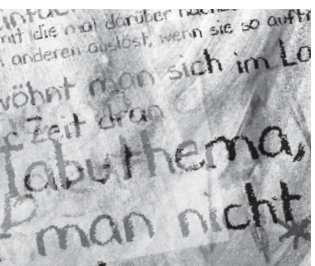 einfach
mit die mal darüber nach
anderen auslöst, wenn sie so auftr
wöhnt man sich im La
Zeit dran
Tabuthema,
man nicht